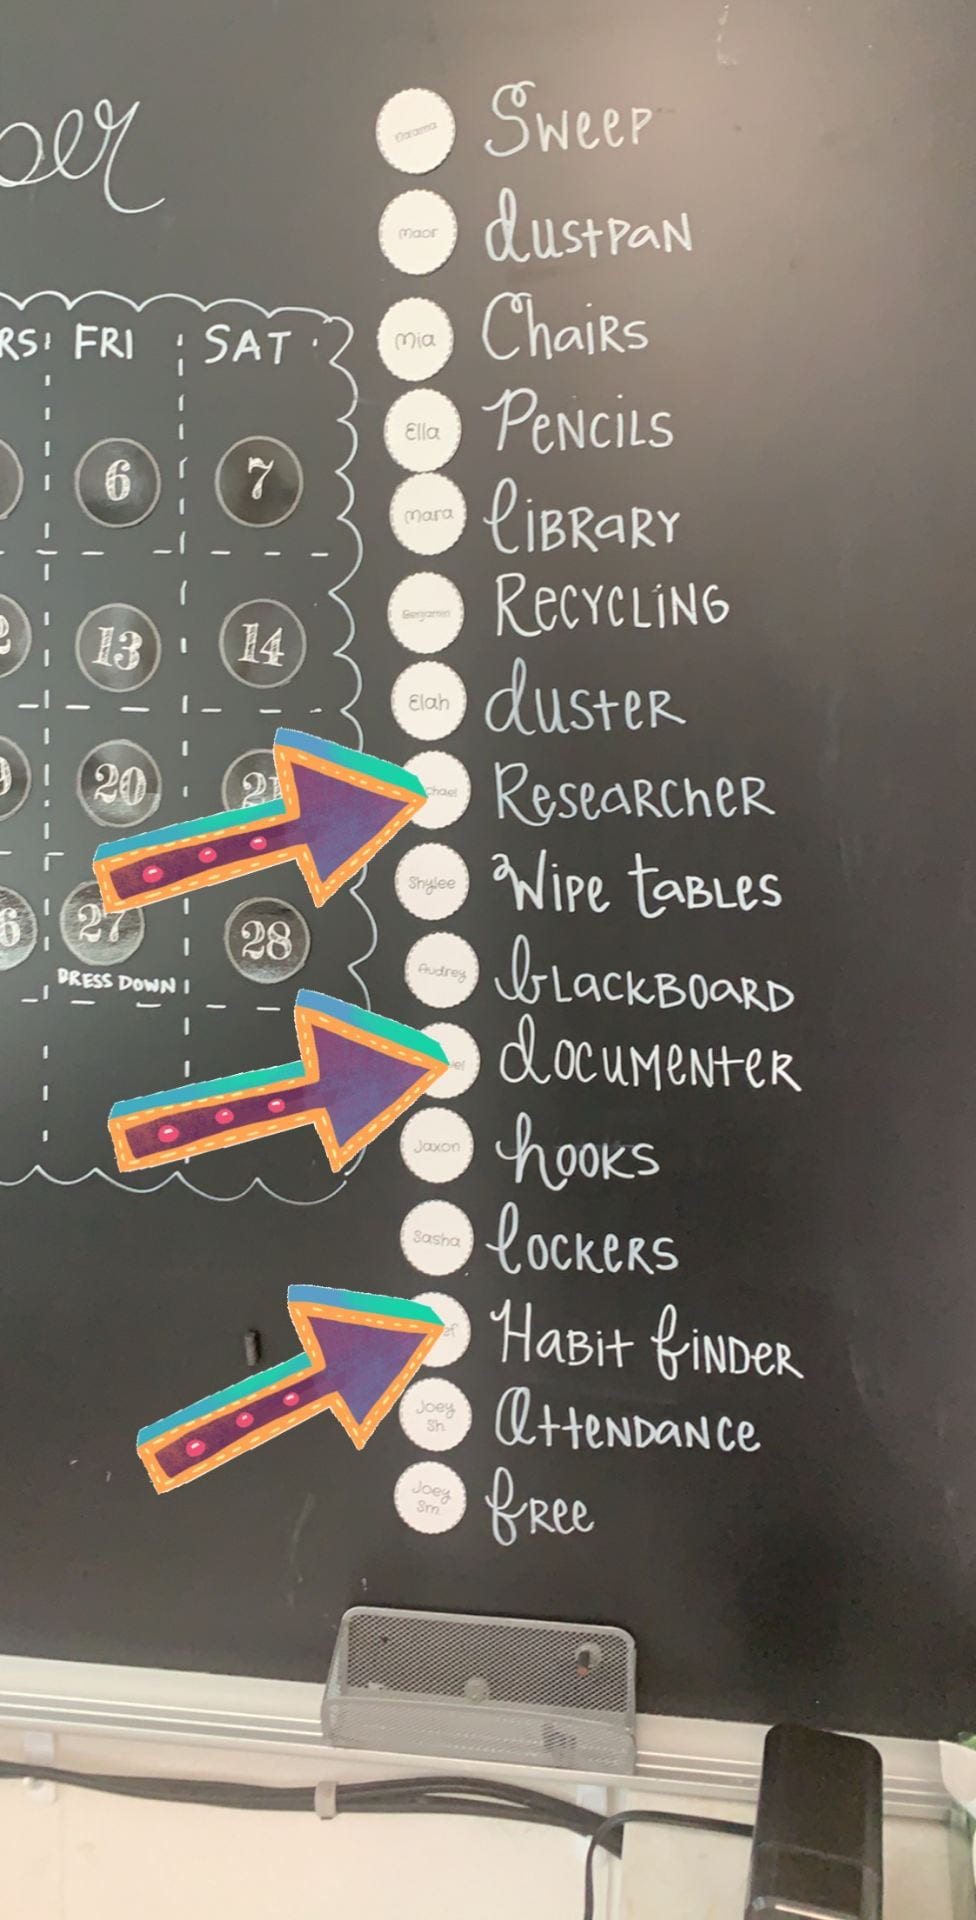 ber
RS FRI SAT
6 7
13 14
20 21
6 27 28
DRESS DOWN
Sweep
Maor dustpan
Mia Chairs
Ella Pencils
Mara library
Benjamin Recycling
Elah duster
chael Researcher
Shylee Wipe tables
Audrey blackboard
documenter
Jaxon hooks
Sasha lockers
ef Habit finder
Joey Sh. Attendance
Joey Sm. free